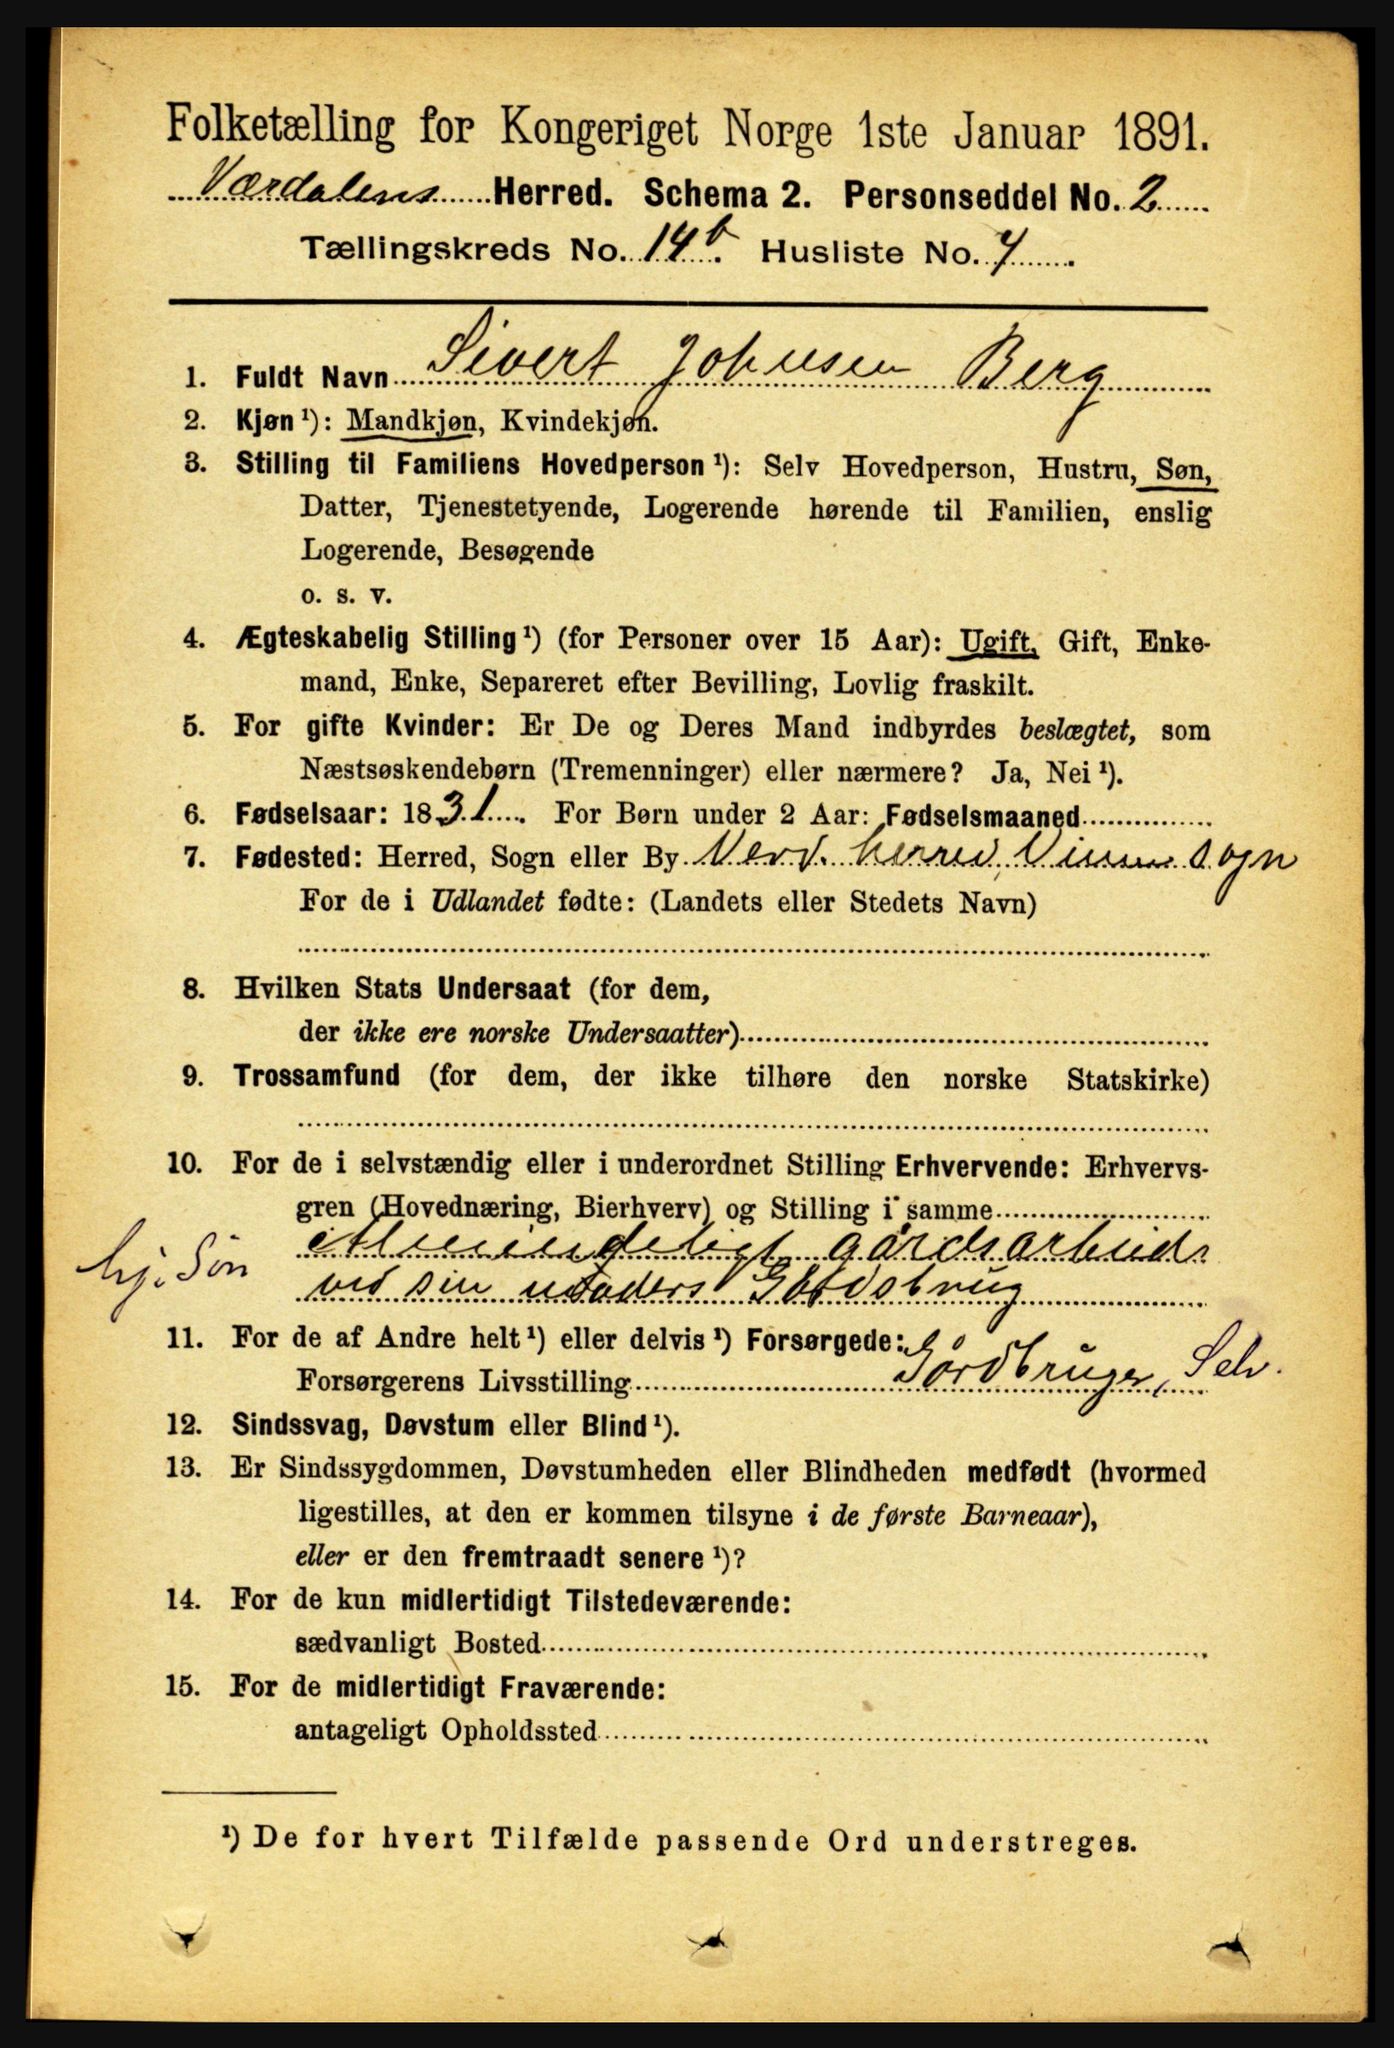 Folketælling for Kongeriget Norge 1ste Januar 1891.
Værdalens Herred. Schema 2. Personseddel No. 2
Tællingskreds No. 14b. Husliste No. 7
1. Fuldt Navn Sivert Johnsen Berg
2. Kjøn ¹): Mandkjøn, Kvindekjøn.
3. Stilling til Familiens Hovedperson ¹): Selv Hovedperson, Hustru, Søn,
Datter, Tjenestetyende, Logerende hørende til Familien, enslig
Logerende, Besøgende
o. s. v.
4. Ægteskabelig Stilling ¹) (for Personer over 15 Aar): Ugift, Gift, Enke-
mand, Enke, Separeret efter Bevilling, Lovlig fraskilt.
5. For gifte Kvinder: Er De og Deres Mand indbyrdes beslægtet, som
Næstsøskendebørn (Tremenninger) eller nærmere? Ja, Nei ¹).
6. Fødselsaar: 1831. For Børn under 2 Aar: Fødselsmaaned
7. Fødested: Herred, Sogn eller By Verd. herred, Vinne Sogn
For de i Udlandet fødte: (Landets eller Stedets Navn)
8. Hvilken Stats Undersaat (for dem,
der ikke ere norske Undersaatter)
9. Trossamfund (for dem, der ikke tilhøre den norske Statskirke)
10. For de i selvstændig eller i underordnet Stilling Erhvervende: Erhvervs-
gren (Hovednæring, Bierhverv) og Stilling i samme
Almindeligt gårdsarbeid
hj. Søn ved sin Gårdsbrug
11. For de af Andre helt ¹) eller delvis ¹) Forsørgede:
Forsørgerens Livsstilling Gårdbruger, Selv.
12. Sindssvag, Døvstum eller Blind ¹).
13. Er Sindssygdommen, Døvstumheden eller Blindheden medfødt (hvormed
ligestilles, at den er kommen tilsyne i de første Barneaar),
eller er den fremtraadt senere ¹)?
14. For de kun midlertidigt Tilstedeværende:
sædvanligt Bosted
15. For de midlertidigt Fraværende:
antageligt Opholdssted
¹) De for hvert Tilfælde passende Ord understreges.